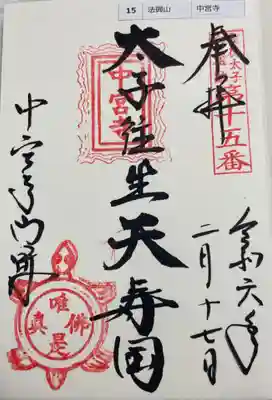 15 法興山 中宮寺
奉拝
太子 第十五番
令和六年
二月十七日
中宮寺
太子往生天寿国
中宮寺門跡
唯佛是真